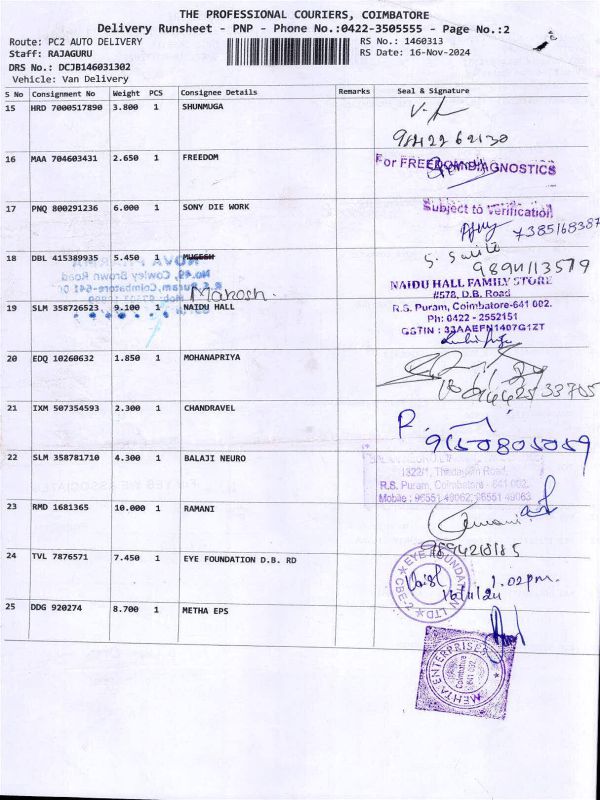 THE PROFESSIONAL COURIERS, COIMBATORE
Delivery Runsheet - PNP - Phone No.:0422-3505555 - Page No.:2
Route: PC2 AUTO DELIVERY RS No.: 1460313
Staff: RAJAGURU RS Date: 16-Nov-2024
DRS No.: DCJB146031302
Vehicle: Van Delivery
S No Consignment No Weight PCS Consignee Details Remarks Seal & Signature
15 HRD 7000517890 3.800 1 SHUNMUGA
9842262130
16 MAA 704603431 2.650 1 FREEDOM
For FREEDOM DIAGNOSTICS
17 PNQ 800291236 6.000 1 SONY DIE WORK
Subject to Verification
7385168387
18 DBL 415389935 5.450 1 MUGESH
9894113579
Manosh.
19 SLM 358726523 9.100 1 NAIDU HALL
NAIDU HALL FAMILY STORE
#578, D.B. Road
R.S. Puram, Coimbatore-641 002.
Ph: 0422 - 2552151
GSTIN : 33AAEFN1407G1ZT
20 EDQ 10260632 1.850 1 MOHANAPRIYA
21 IXM 507354593 2.300 1 CHANDRAVEL
9150805059
22 SLM 358781710 4.300 1 BALAJI NEURO
1322/1, Thadagam Road,
R.S. Puram, Coimbatore - 641 002.
Mobile : 96551 49062, 96551 49063
23 RMD 1681365 10.000 1 RAMANI
Ramani
24 TVL 7876571 7.450 1 EYE FOUNDATION D.B. RD
EYE FOUNDATION LTD
CBE-2
1.02pm.
16/11/24
25 DDG 920274 8.700 1 METHA EPS
MEHTA ENTERPRISES
Coimbatore
641 002